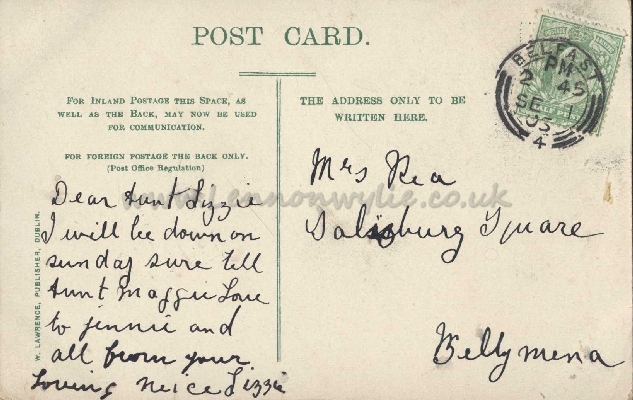 POST CARD.
FOR INLAND POSTAGE THIS SPACE, AS
WELL AS THE BACK, MAY NOW BE USED
FOR COMMUNICATION.
FOR FOREIGN POSTAGE THE BACK ONLY.
(Post Office Regulation)
THE ADDRESS ONLY TO BE
WRITTEN HERE.
BELFAST
PM
2 45
SE 1
05
4
W. LAWRENCE, PUBLISHER, DUBLIN.
www.lennonwylie.co.uk
Dear Aunt Lizzie
I will be down on
sunday sure tell
Aunt Maggie Love
to jennie and
all from your
loving neice Lizzie
Mrs Rea
Salisburg Square
Bellymena